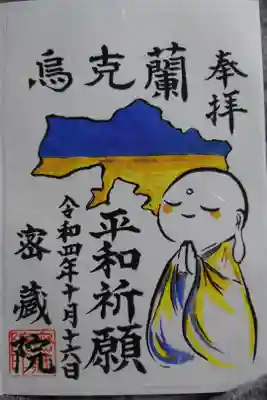 奉拝
烏克蘭
平和祈願
令和四年十月十六日
密蔵院